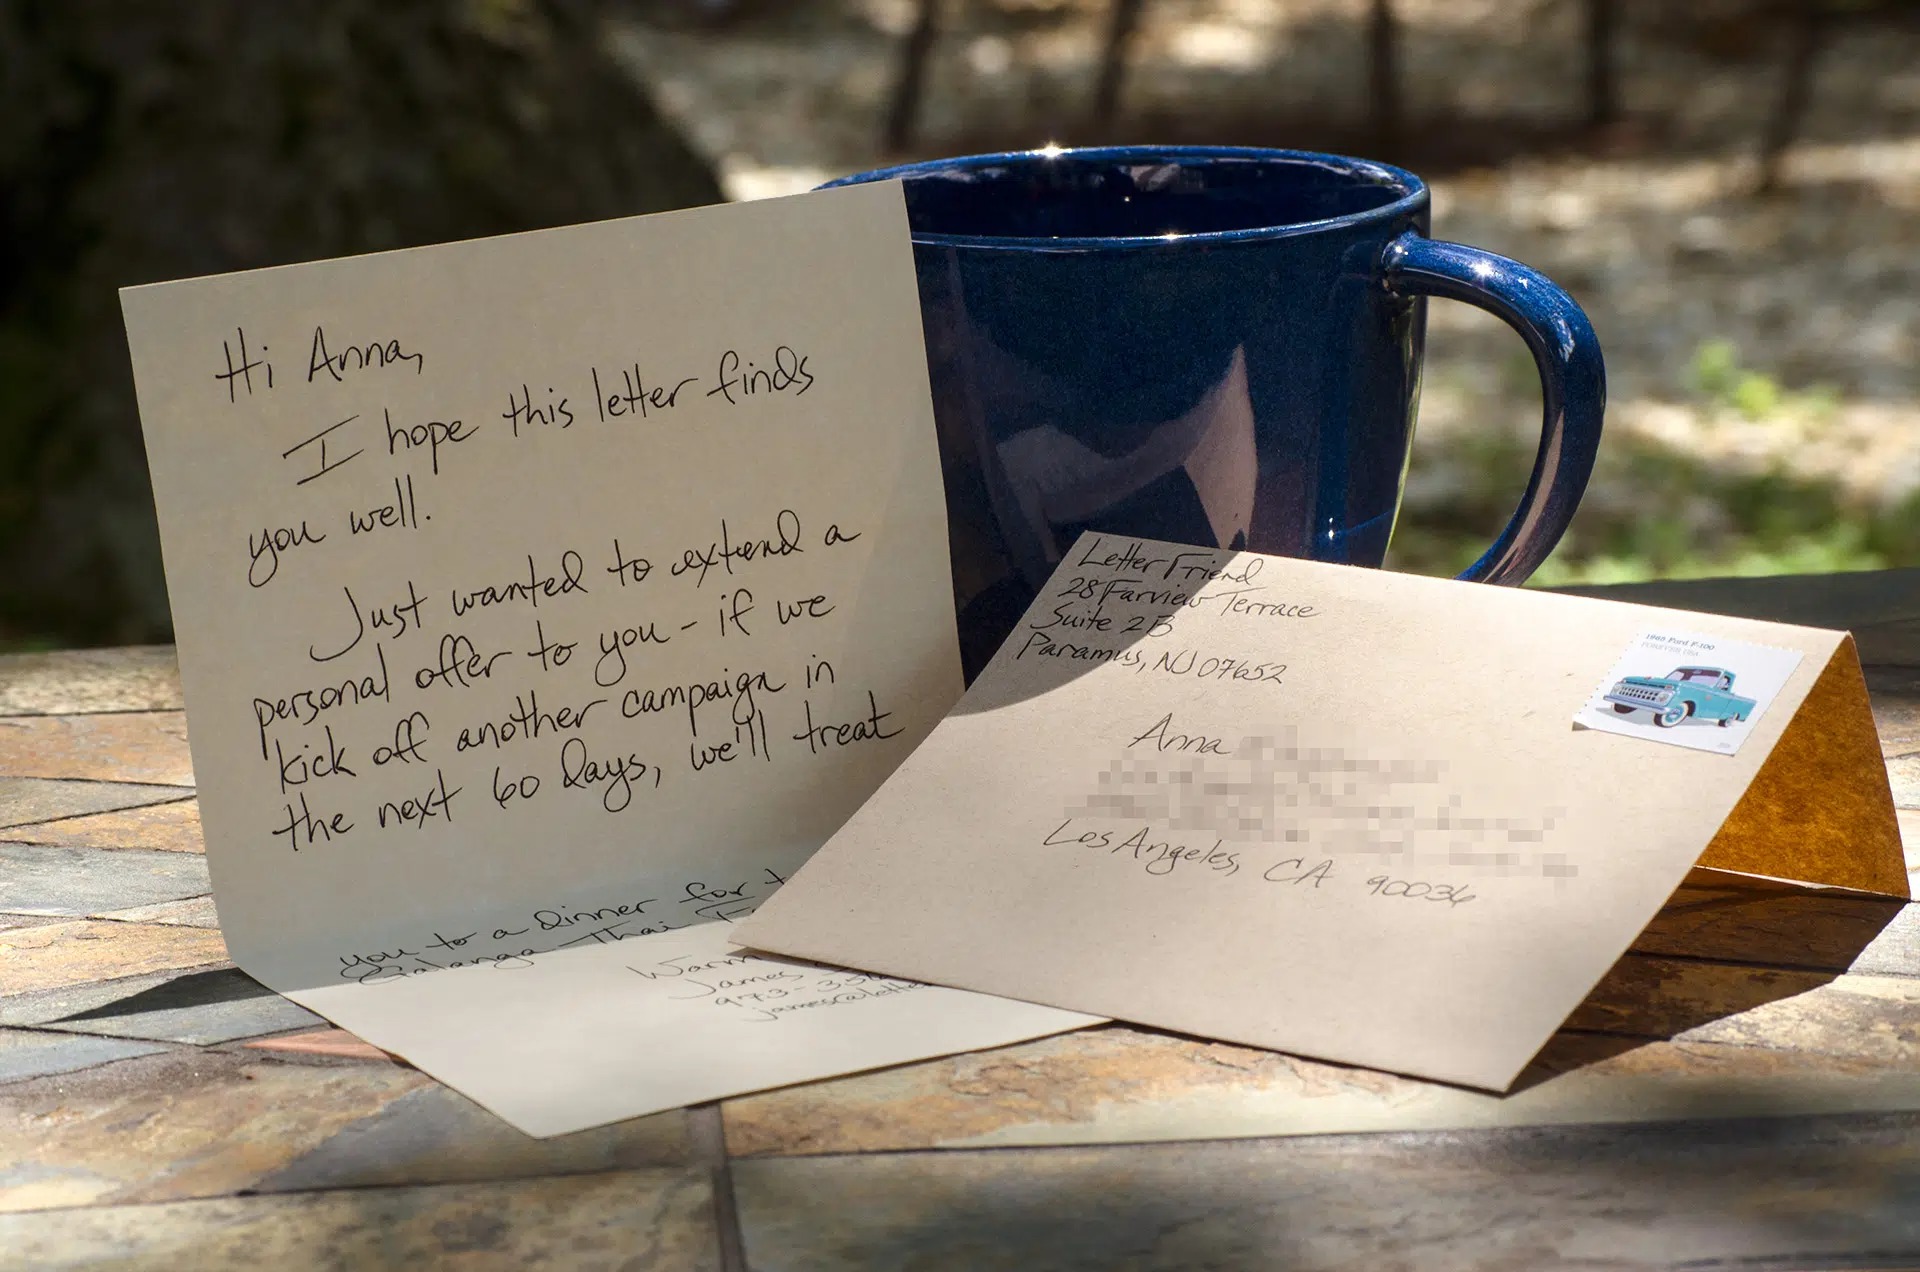 Hi Anna,
I hope this letter finds
you well.
Just wanted to extend a
personal offer to you - if we
kick off another campaign in
the next 60 days, we'll treat
you to a dinner for
Galanga Thai
Warm
James
973-
james@lette
Letter Friend
28 Farview Terrace
Suite 2B
Paramus, NJ 07652
1965 Ford F-100
FOREVER USA
Anna
Los Angeles, CA 90036